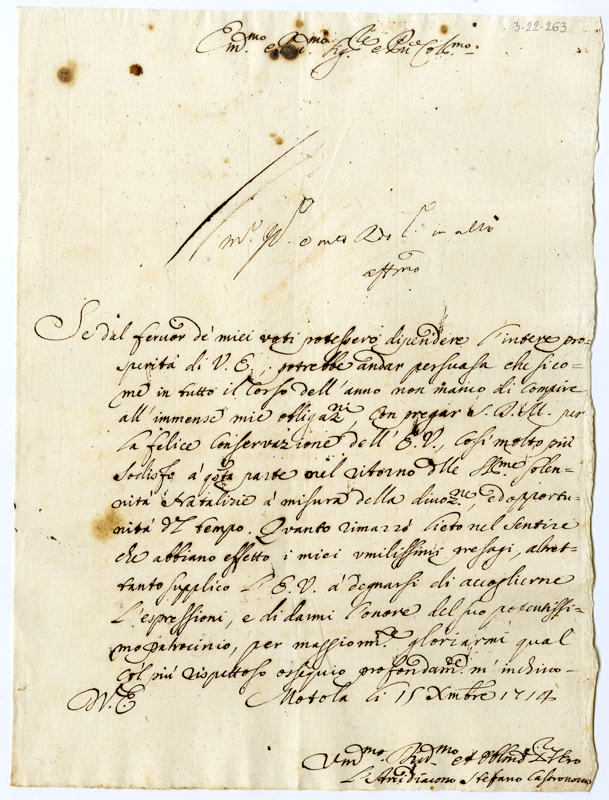 3-22-263
Em.mo e R.mo Sig.re e P.ne Col.mo
in alto
Se dal feruor de' miei voti potessero dipendere l'intere pro-
sperità di V. E., potrebbe andar persuasa che sico-
me in tutto il corso dell'anno non manco di compire
all'immense mie obligaz.ni, con pregar S. D. M. per
la felice conservazione dell'E. V., così molto più
sodisfo à q.sta parte nel ritorno delle SS.me solen-
nità Natalizie à misura della divoz.ne, ed opportu-
nità del tempo. Quanto rimarrò lieto nel sentire
che abbiano effetto i miei vmilissimi presagi, altret-
tanto supplico l'E. V. à degnarsi di accoglierne
l'espressioni, e di darmi l'onore del suo potentissi-
mo patrocinio, per maggiorm.te gloriarmi qual
col più rispettoso ossequio profondam.te m'inchino-
D. V. E. Motola li 15 Xmbre 1714
Vm.mo Diu.mo et Oblig.mo
L'Arcidiacono Stefano Castronovo